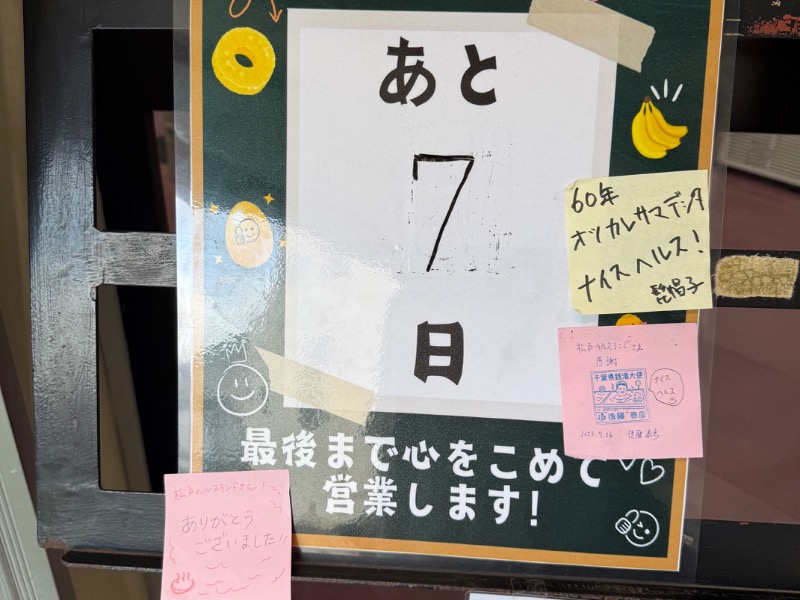 あと
7
日
最後まで心をこめて
営業します!
60年
オツカレサマデシタ
ナイスヘルス!
松戸ヘルスランドさま
感謝
千葉県銭湯大使
ナイス
ヘルス
松戸ヘルスランドさん!
ありがとう
ございました!!